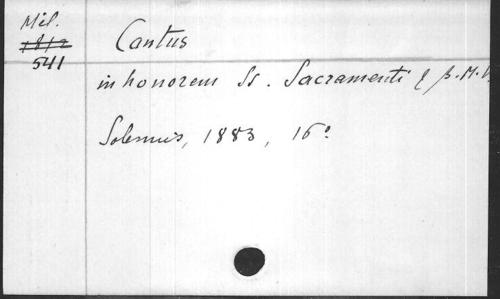 Mil.
1812
541
Cantus
in honorem Ss. Sacramenti & B. M. V.
Solesmis, 1883, 16°